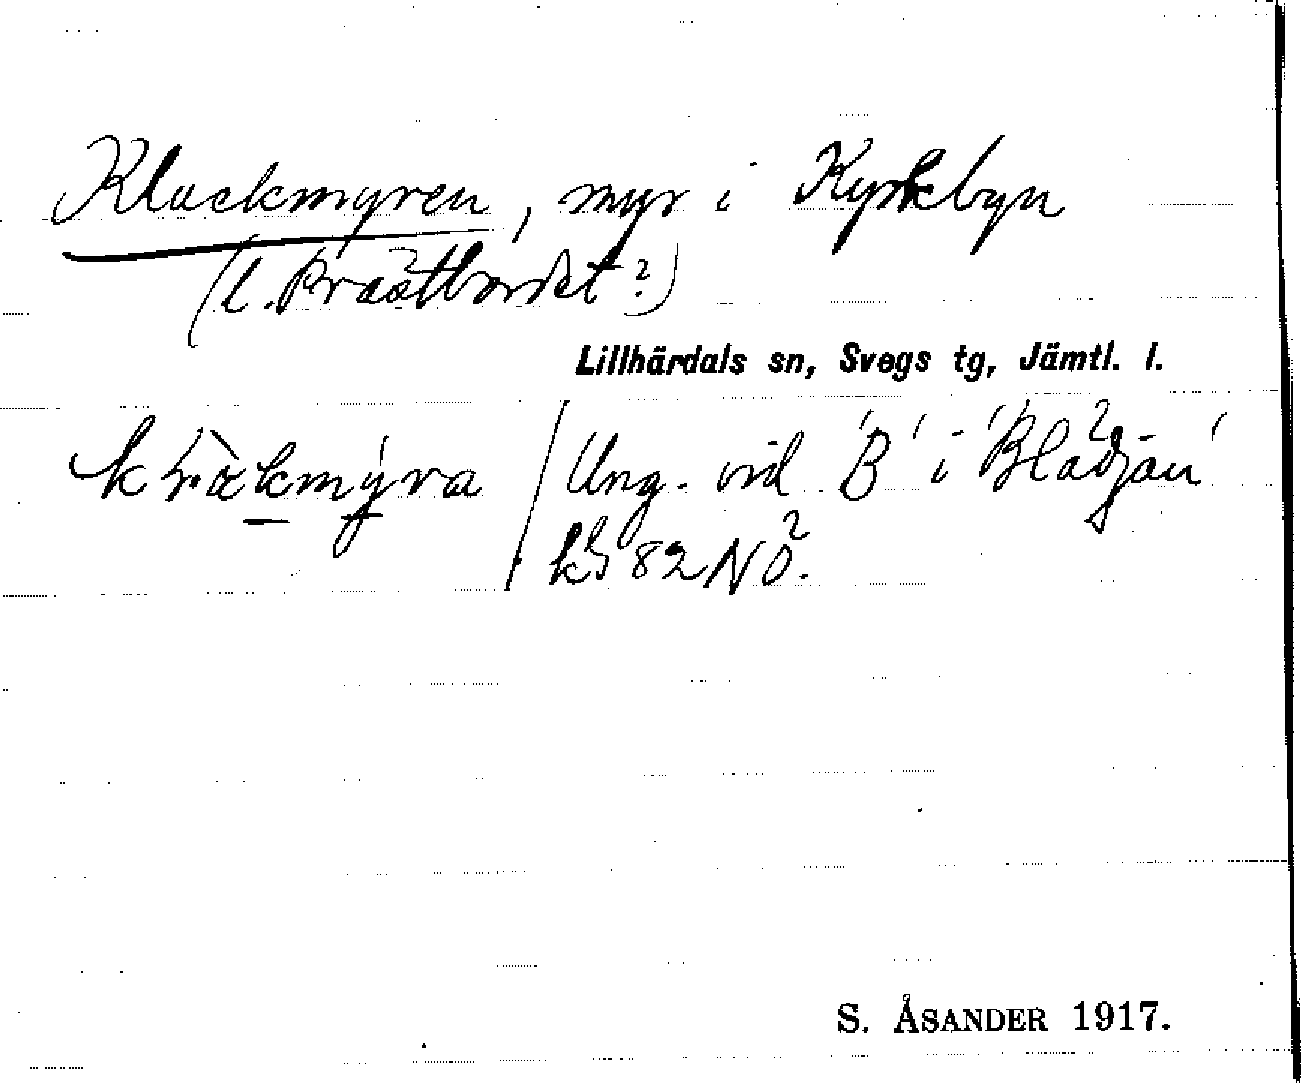 Klackmyren, myr i Kyrkbyn
(l. Prästbordet?)
Lillhärdals sn, Svegs tg, Jämtl. l.
Ung. vid 'B' i 'Blådjän'
82 NO.
S. ÅSANDER 1917.